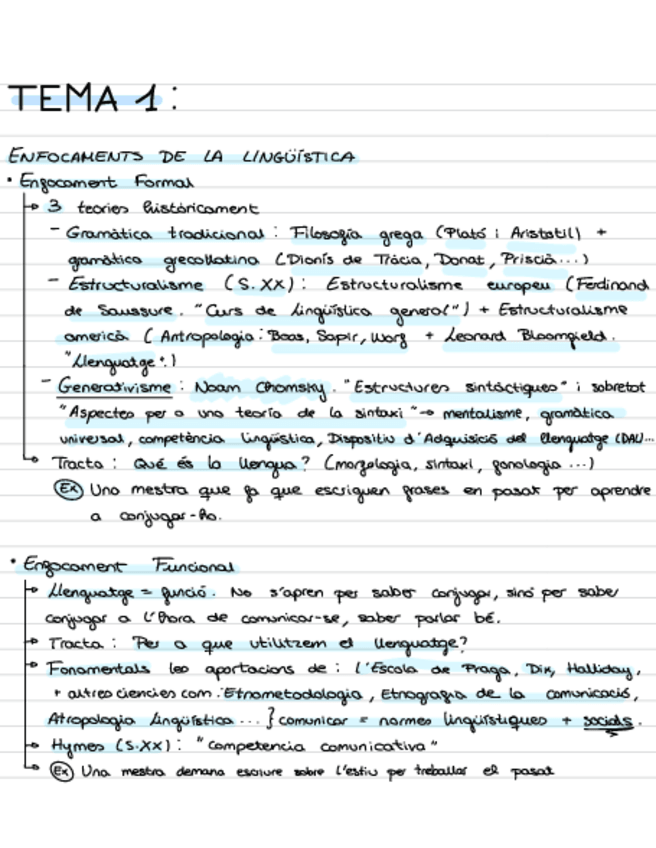 TEMA 1:
ENFOCAMENTS DE LA LINGÜÍSTICA
• Enfocament Formal
→ 3 teories històricament
- Gramàtica tradicional: Filosofia grega (Plató i Aristòtil) +
gramàtica grecollatina (Dionís de Tràcia, Donat, Priscià...)
- Estructuralisme (S.XX): Estructuralisme europeu (Ferdinand
de Saussure. "Curs de Lingüística general") + Estructuralisme
americà (Antropologia: Boas, Sapir, Worf + Leonard Bloomfield.
"Llenguatge".)
- Generativisme: Noam Chomsky. "Estructures sintàctiques" i sobretot
"Aspectes per a una teoria de la sintaxi" → mentalisme, gramàtica
universal, competència lingüística, Dispositiu d'Adquisició del Llenguatge (DAL)...
→ Tracta: Què és la llengua? (morfologia, sintaxi, fonologia ...)
Ex Una mestra que fa que escriguen frases en passat per aprendre
a conjugar-ho.
• Enfocament Funcional
→ Llenguatge = funció. No s'apren per saber conjugar, sinó per saber
conjugar a l'hora de comunicar-se, saber parlar bé.
→ Tracta: Per a que utilitzem el llenguatge?
→ Fonamentals les aportacions de: l'Escola de Praga, Dix, Halliday,
+ altres ciencies com: Etnometodologia, Etnografia de la comunicació,
Atropologia Lingüística ... } comunicar = normes lingüístiques + socials.
→ Hymes (S.XX): "competencia comunicativa"
→ Ex Una mestra demana escriure sobre l'estiu per treballar el passat